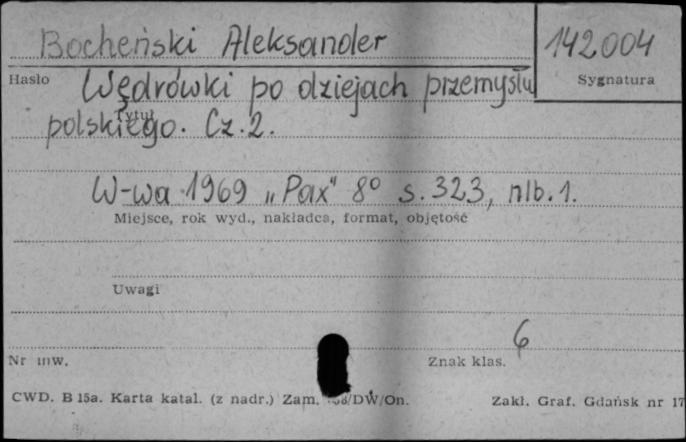 Bocheński Aleksander 142004
Hasło Sygnatura
Wędrówki po dziejach przemysłu
Tytuł
polskiego. Cz. 2.
W-wa 1969 „Pax" 8° s. 323, nlb. 1.
Miejsce, rok wyd., nakładca, format, objętość
Uwagi
6
Nr inw. Znak klas.
CWD. B 15a. Karta katal. (z nadr.) Zam. /DW/On. Zakł. Graf. Gdańsk nr 17